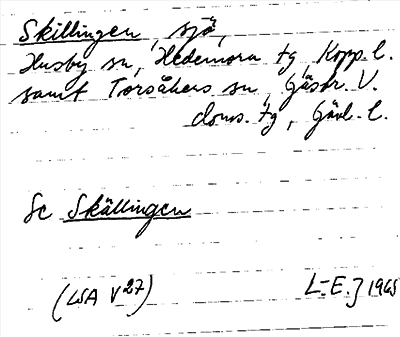 Skillingen, sjö,
Husby sn, Hedemora tg, Kopp. l.
samt Torsåkers sn, Gästr. V.
doms. tg, Gävl. l.
Se Skällingen
(LSA V27)
L-E. J 1965